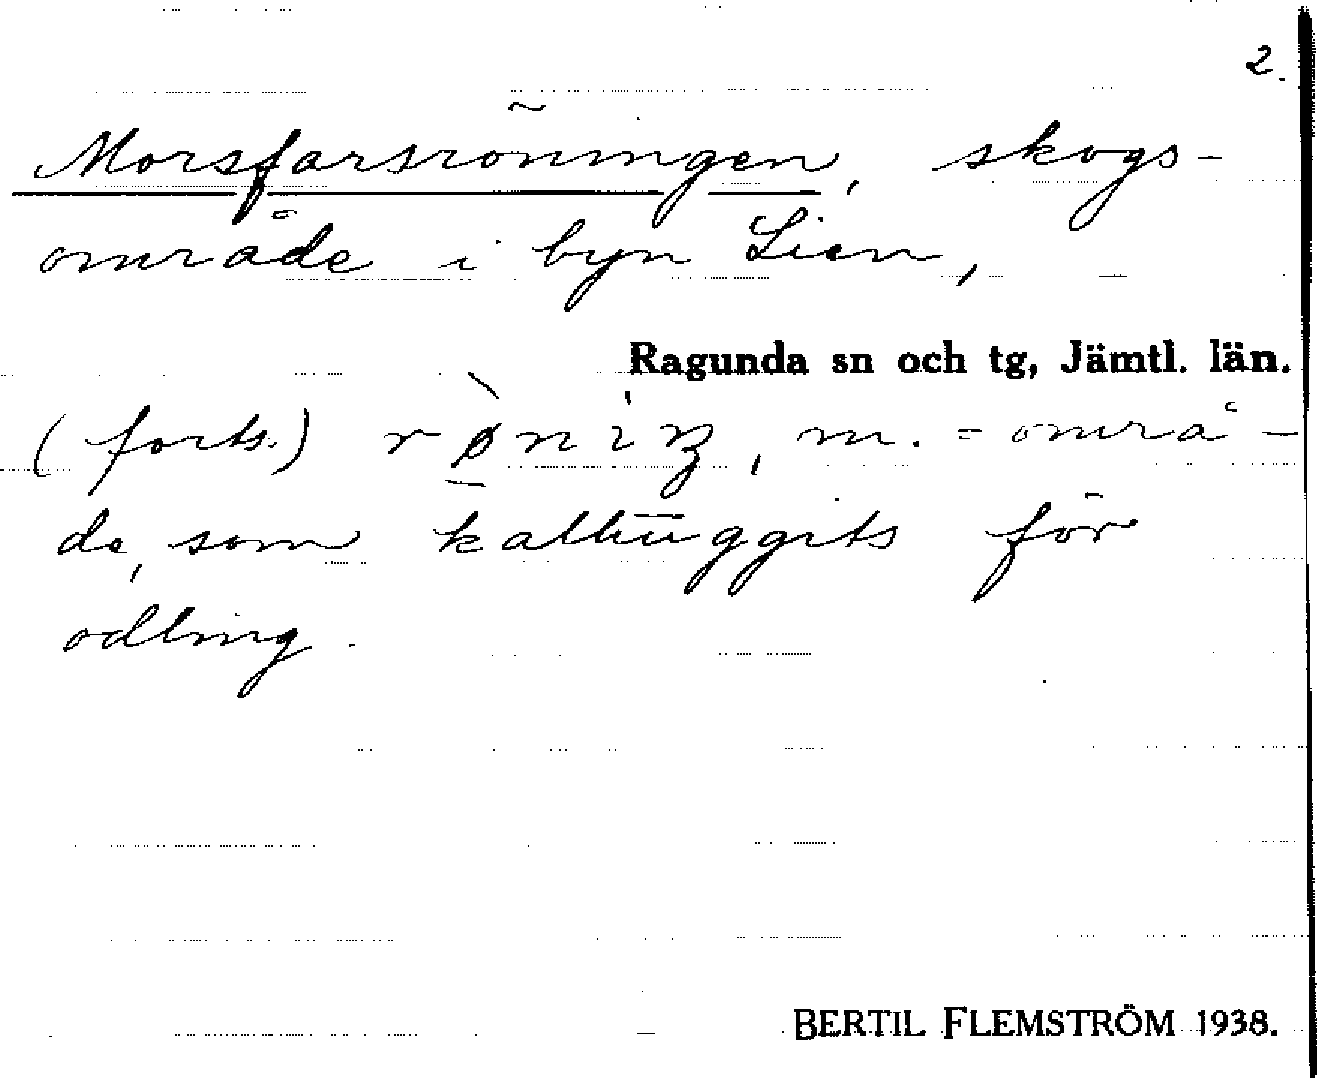 2.
Morsfarsröningen, skogs-
område i byn Lien,
Ragunda sn och tg, Jämtl. län.
(forts.) , m. = områ-
de, som kalhuggits för
odling.
BERTIL FLEMSTRÖM 1938.